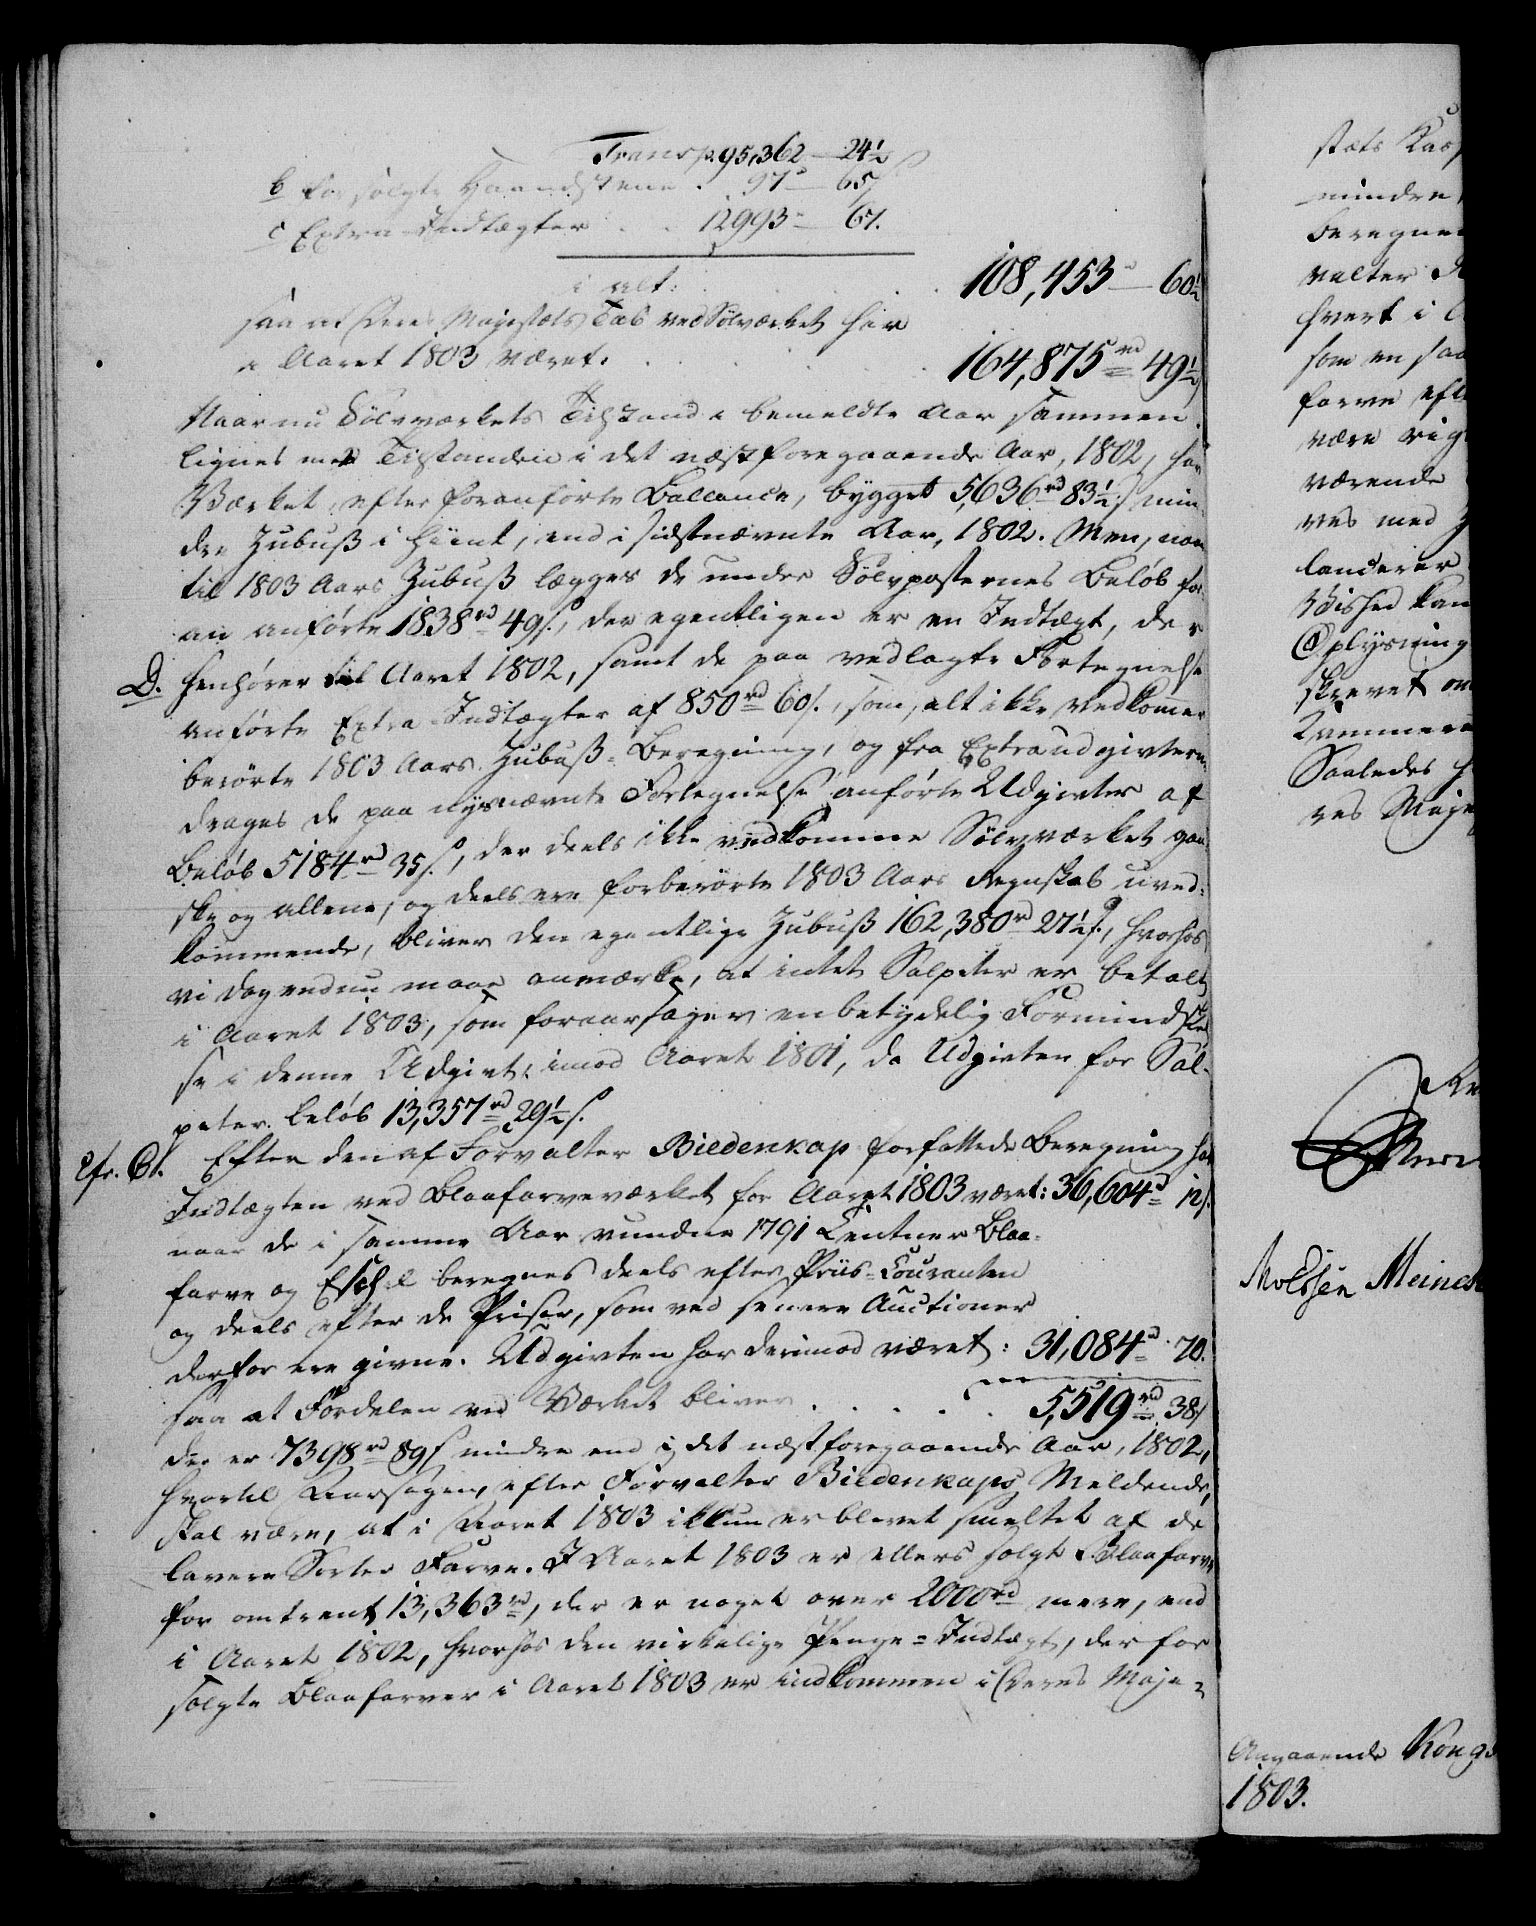 Transp. 95,362 — 24½
b for solgte Haandstene . 97 — 65 s
c Extra Indtægter . . 12993 — 67.
i alt: . . . . 108,453 — 60½
saa at Deres Majestæts Tab ved Sølvværket har
i Aaret 1803 været. . . . . 164,875 rd 49½
Naar nu Sølvværkets Tilstand i bemeldte Aar sammen-
lignes med Tilstanden i det næstforegaaende Aar, 1802, har
Værket, efter foranførte Ballance, bygget 5,636 rd 83½ s min-
dre Zubuß i hiint, end i sidstnævnte Aar, 1802. Men, naar
til 1803 Aars Zubuß lægges de under Sølvposternes Beløb for-
an anførte 1838 rd 49 s., der egentligen er en Indtægt, der
D. henhører til Aaret 1802, samt de paa vedlagte Fortegnelse
anførte Extra-Indtægter af 850 rd 60 s., som, alt ikke vedkomer
berørte 1803 Aars Zubuß-Beregning, og fra Extraudgivterne
drages de paa nysnævnte Fortegnelse anførte Udgivter af
Beløb 5184 rd 35 s., der deels ikke vedkomme Sølvværket gan-
ske og allene, og deels ere forberørte 1803 Aars Regnskab uved-
kommende, bliver den egentlige Zubuß 162,380 rd 27½ s., hvorhos
vi dog endnu maae anmærke, at intet Salpeter er betalt
i Aaret 1803, som foraarsager en betydelig Formindskel-
se i denne Udgivt, imod Aaret 1801, da Udgivten for Sal-
peter beløb 13,357 rd 29½ s.
Cfr. Bl. Efter den af Forvalter Biedenkap forfattede Beregning har
Indtægten ved Blaafarveværket for Aaret 1803 været: 36,604 rd 12 s.
naar de i samme Aar vundne 1791 Centner Blaa-
farve og Eschel beregnes deels efter Priis-Couranten
og deels efter de Priser, som ved senere Auctioner
derfor ere givne. Udgivten har derimod været: 31,084 rd 70.
saa at Fordelen ved Værket bliver . . . . . 5,519 rd 38 s
der er 7398 rd 89 s mindre end i det næstforegaaende Aar, 1802,
hvortil Aarsagen, efter Forvalter Biedenkaps Meldende,
skal være, at i Aaret 1803 ikkun er blevet smeltet af de
lavere Sorter Farve. I Aaret 1803 er ellers solgt Blaafarve
for omtrent 13,363 rd, der er noget over 2000 rd mere, end
i Aaret 1802, hvorhos den virkelige Penge-Indtægt, der for
solgte Blaafarver i Aaret 1803 er indkommen i Deres Maje-
stæts Kas
mindre,
beregne
valter
hvert i
som en saa
farve eft
være rig
værende
ves med
landerer
Vished kan
Oplysning
skrevet om
Kammer
Saaledes
res Maje
Moessen Meinck
Angaaende Kongs
1803.